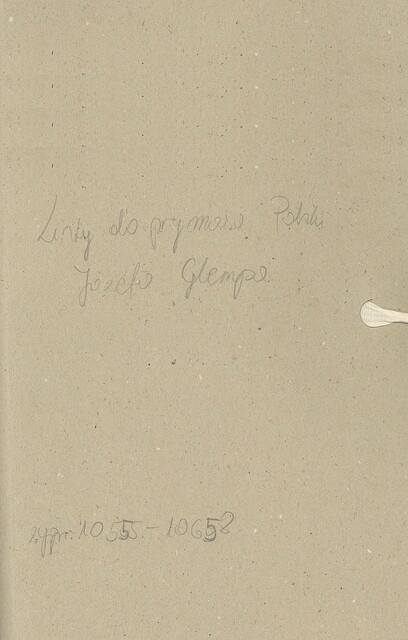 Listy do prymasa Polski
Józefa Glempa
10555 - 10658